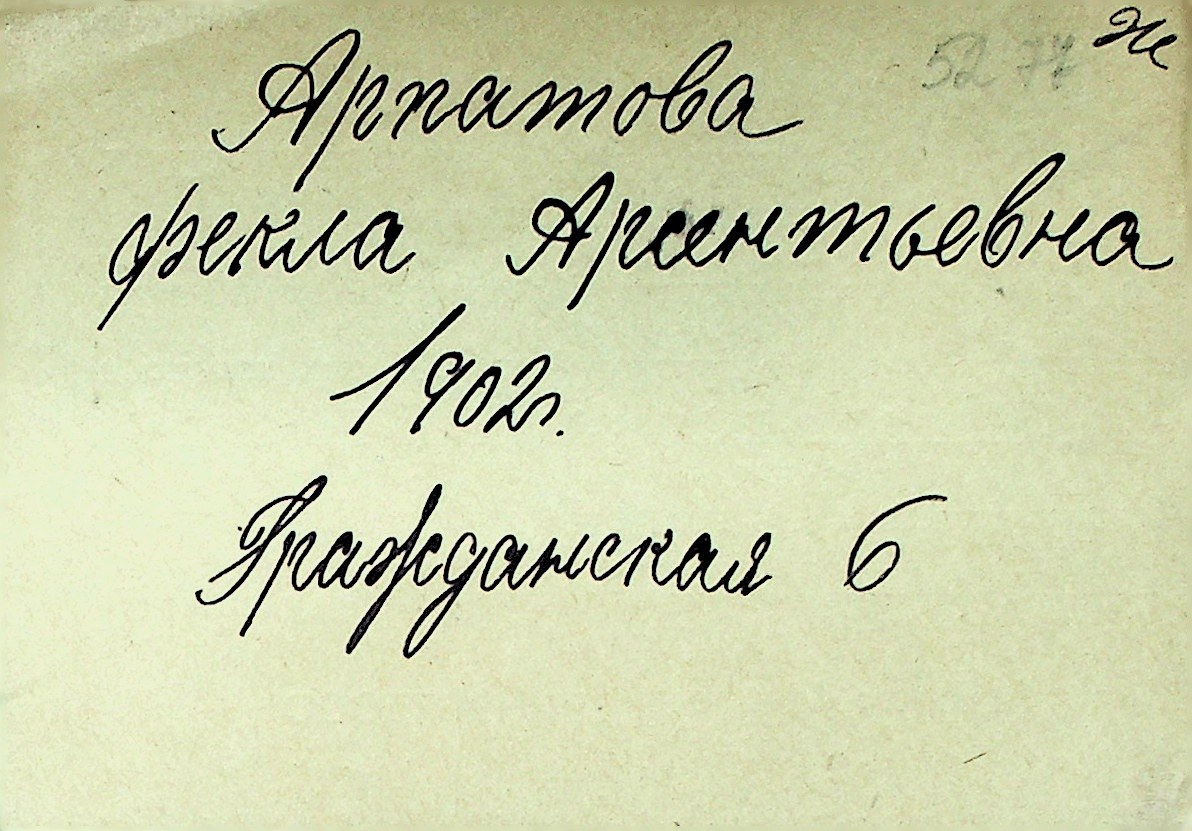 52 77 ж
Арпатова
фекла Арсентьевна
1902г.
Гражданская 6